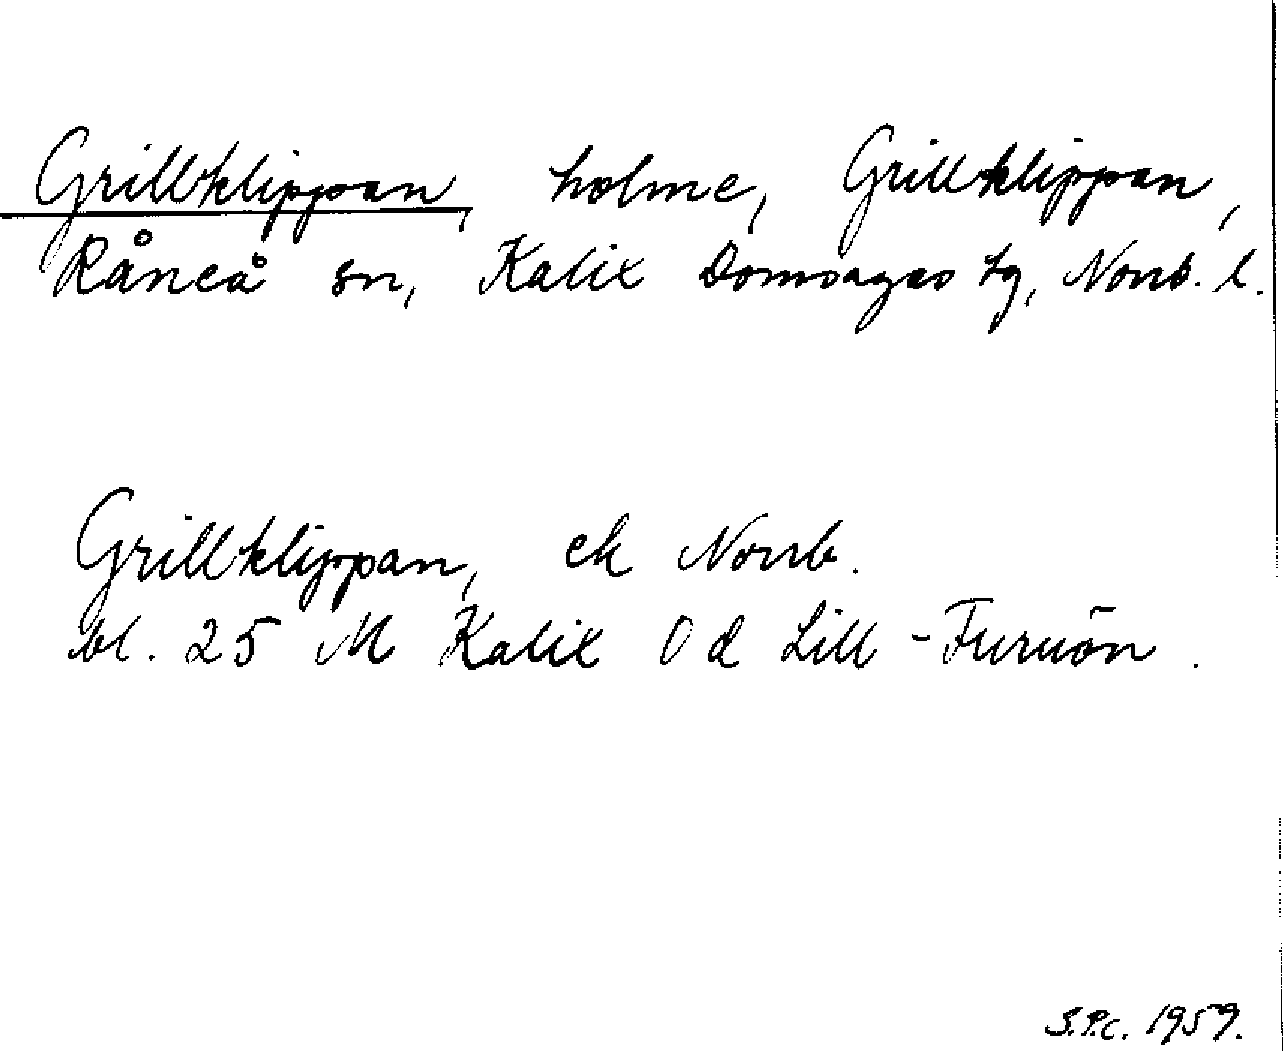 Grillklippan, holme, Grillklippan,
Råneå sn, Kalix Domsagas tg, Norrb. l.
Grillklippan, ek Norrb.
bl. 25 M Kalix O d Lill-Furuön.
S.P.C. 1959.